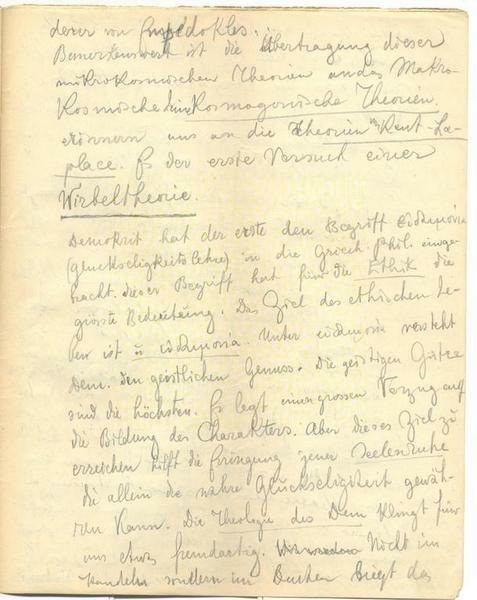 derer von Empedokles.
Bemerkenswert ist die Übertragung dieser
mikrokosmischen Theorien an das Makro-
kosmische. Seine Kosmogonische Theorien
erinnern uns an die Theorien v. Kant-La-
place. Es der erste Versuch einer
Wirbeltheorie.
Demokrit hat der erste den Begriff εὐδαιμονία
(glückseligkeitslehre) in die Griech. Phil. einge-
bracht. dieser Begriff hat für die Ethik die
grösste Bedeutung. Das Ziel des ethischen Le-
ben ist ἡ εὐδαιμονία. Unter εὐδαιμονία versteht
Dem. den geistlichen Genuss. Die geistigen Güter
sind die höchsten. Es legt einen grossen Vorzug auf
die Bildung des Charakters. Aber dieses Ziel zu
erreichen hilft die Erringung jener Seelenruhe
die allein die wahre Glückseligkeit gewäh-
ren kann. Die Theologie des Dem klingt für
uns etwas fremdartig. Nicht im
Handeln sondern im Denken liegt das